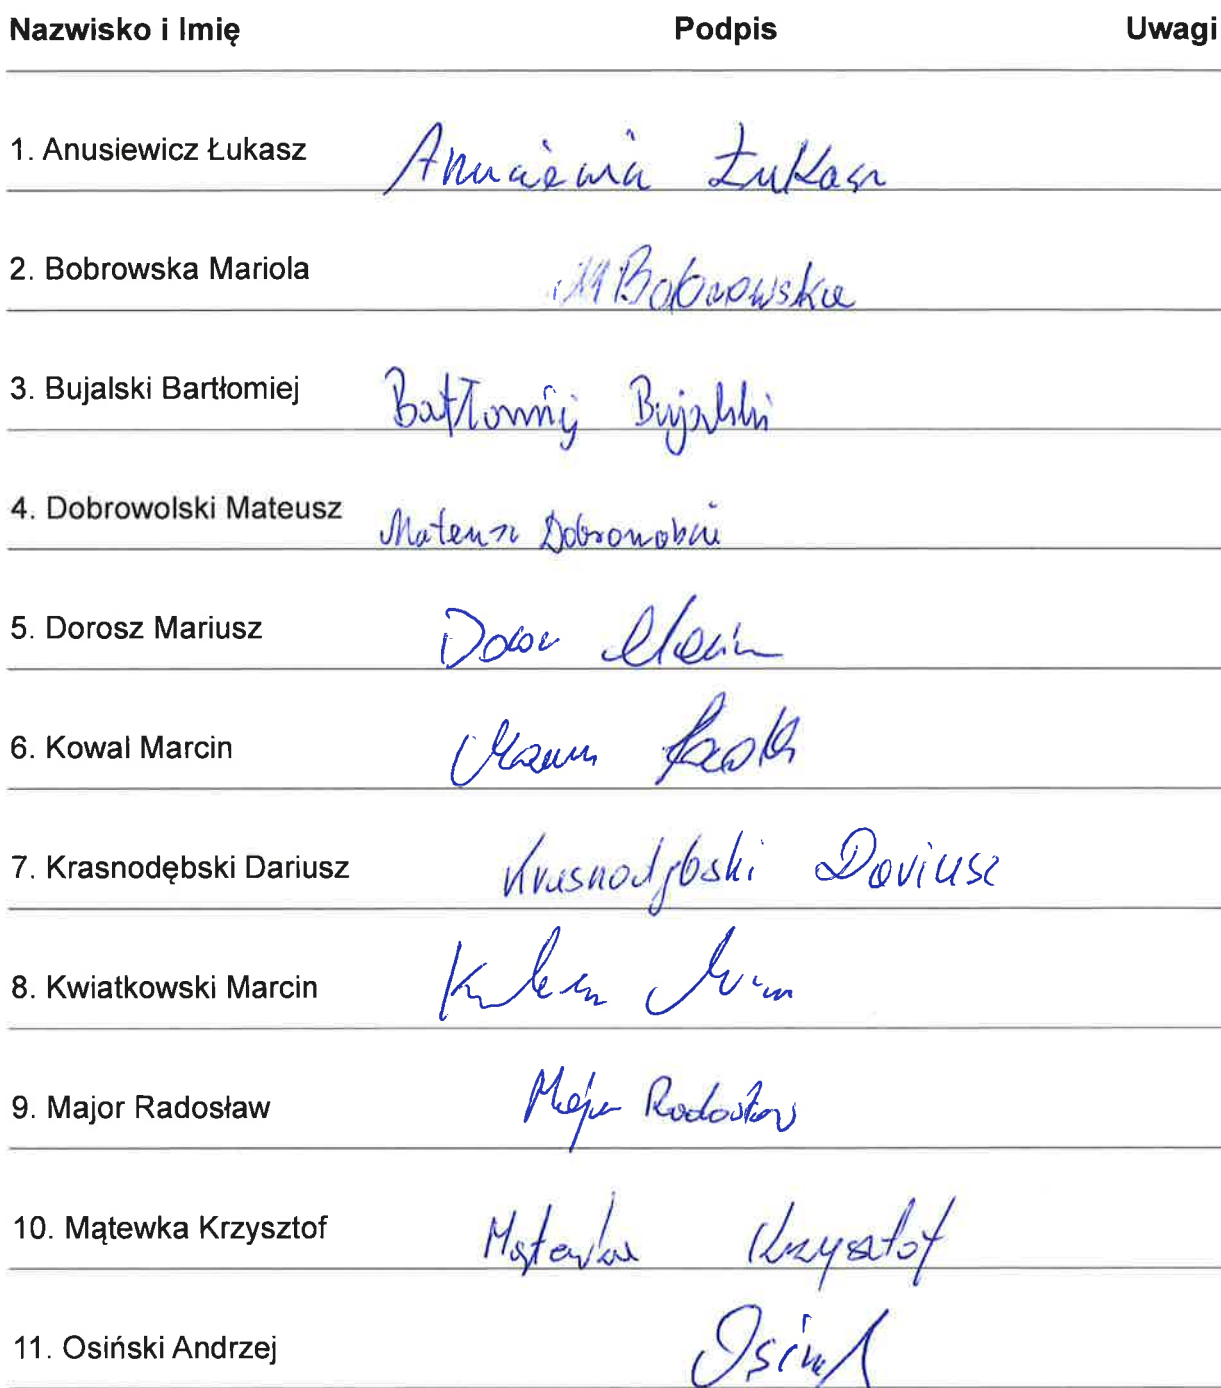 Nazwisko i Imię Podpis Uwagi
1. Anusiewicz Łukasz Anusiewicz Łukasz
2. Bobrowska Mariola M Bobrowska
3. Bujalski Bartłomiej Bartłomiej Bujalski
4. Dobrowolski Mateusz Mateusz Dobrowolski
5. Dorosz Mariusz
6. Kowal Marcin Marcin
7. Krasnodębski Dariusz Krasnodębski Dariusz
8. Kwiatkowski Marcin
9. Major Radosław Major Radosław
10. Mątewka Krzysztof Mątewka Krzysztof
11. Osiński Andrzej